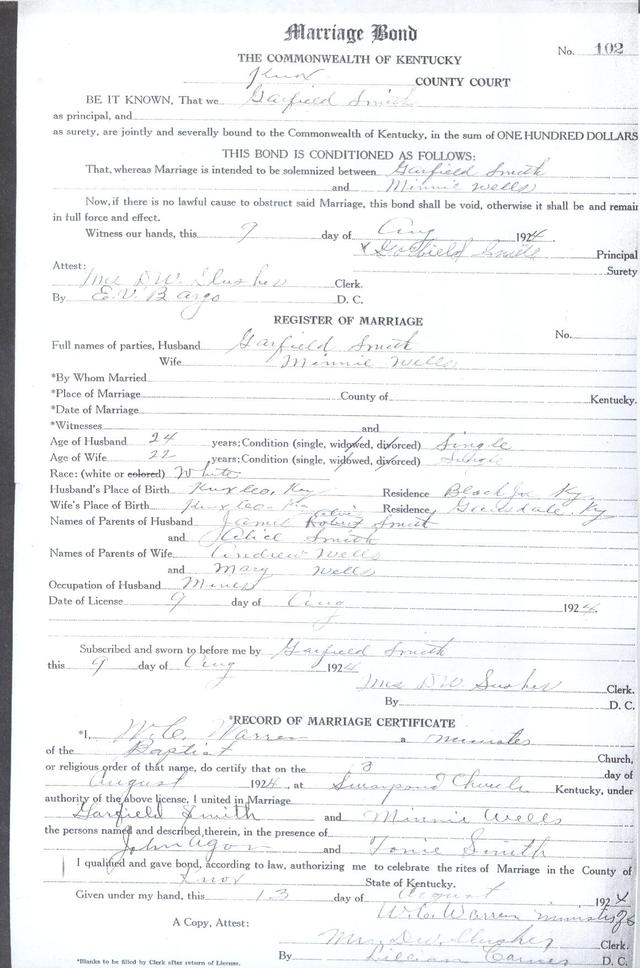 Marriage Bond
No. 102
THE COMMONWEALTH OF KENTUCKY
Knox COUNTY COURT
BE IT KNOWN, That we Garfield Smith
as principal, and
as surety, are jointly and severally bound to the Commonwealth of Kentucky, in the sum of ONE HUNDRED DOLLARS
THIS BOND IS CONDITIONED AS FOLLOWS:
That, whereas Marriage is intended to be solemnized between Garfield Smith
and Minnie Wells
Now, if there is no lawful cause to obstruct said Marriage, this bond shall be void, otherwise it shall be and remain
in full force and effect.
Witness our hands, this 9 day of Aug 1924
x Garfield Smith Principal
Surety
Attest:
Mrs D.W. Slusher Clerk.
By E.V. Bargo D. C.
REGISTER OF MARRIAGE
No.
Full names of parties, Husband Garfield Smith
Wife Minnie Wells
*By Whom Married
*Place of Marriage County of Kentucky.
*Date of Marriage
*Witnesses and
Age of Husband 24 years; Condition (single, widowed, divorced) Single
Age of Wife 22 years; Condition (single, widowed, divorced) Single
Race: (white or colored) White
Husband's Place of Birth Knox Co, Ky Residence Black Joe Ky.
Wife's Place of Birth Knox Co Ky Residence, Ky
Names of Parents of Husband James Robert Smith
and Alice Smith
Names of Parents of Wife Andrew Wells
and Mary Wells
Occupation of Husband Miner
Date of License 9 day of Aug 1924.
Subscribed and sworn to before me by Garfield Smith
this 9 day of Aug 1924
Mrs D W Slusher Clerk.
By D. C.
*RECORD OF MARRIAGE CERTIFICATE
*I, W.C. Warren a minister
of the Baptist Church,
or religious order of that name, do certify that on the day of
August 1924, at Church Kentucky, under
authority of the above license, I united in Marriage
Garfield Smith and Minnie Wells
the persons named and described therein, in the presence of
John and Tonie Smith
I qualified and gave bond, according to law, authorizing me to celebrate the rites of Marriage in the County of
Knox State of Kentucky.
Given under my hand, this 13 day of August 1924
W.C. Warren
A Copy, Attest:
Mrs D.W. Slusher Clerk.
By Lillian D. C.
*Blanks to be filled by Clerk after return of License.